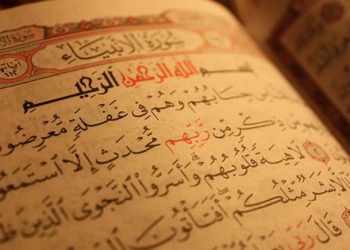 سُورَةُ الْأَنْبِيَاءِ
بِسْمِ اللَّهِ الرَّحْمَنِ الرَّحِيمِ
حِسَابُهُمْ وَهُمْ فِي غَفْلَةٍ مُعْرِضُونَ
مِنْ ذِكْرٍ مِنْ رَبِّهِمْ مُحْدَثٍ إِلَّا اسْتَمَعُو
لَاهِيَةً قُلُوبُهُمْ وَأَسَرُّوا النَّجْوَى الَّذِينَ ظَ
إِلَّا بَشَرٌ مِثْلُكُمْ أَفَتَأْتُونَ ال
قَالَ رَبِّي